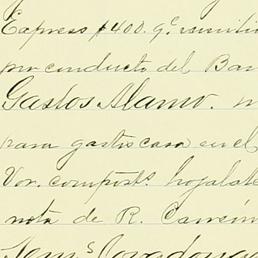 Express $400. qe. remiti
por conducto del Ban
Gastos Alamo. 
para gastos casa en el
Vor. composts. hojalate
nota de R. Carreón
Tem.s Covadonga